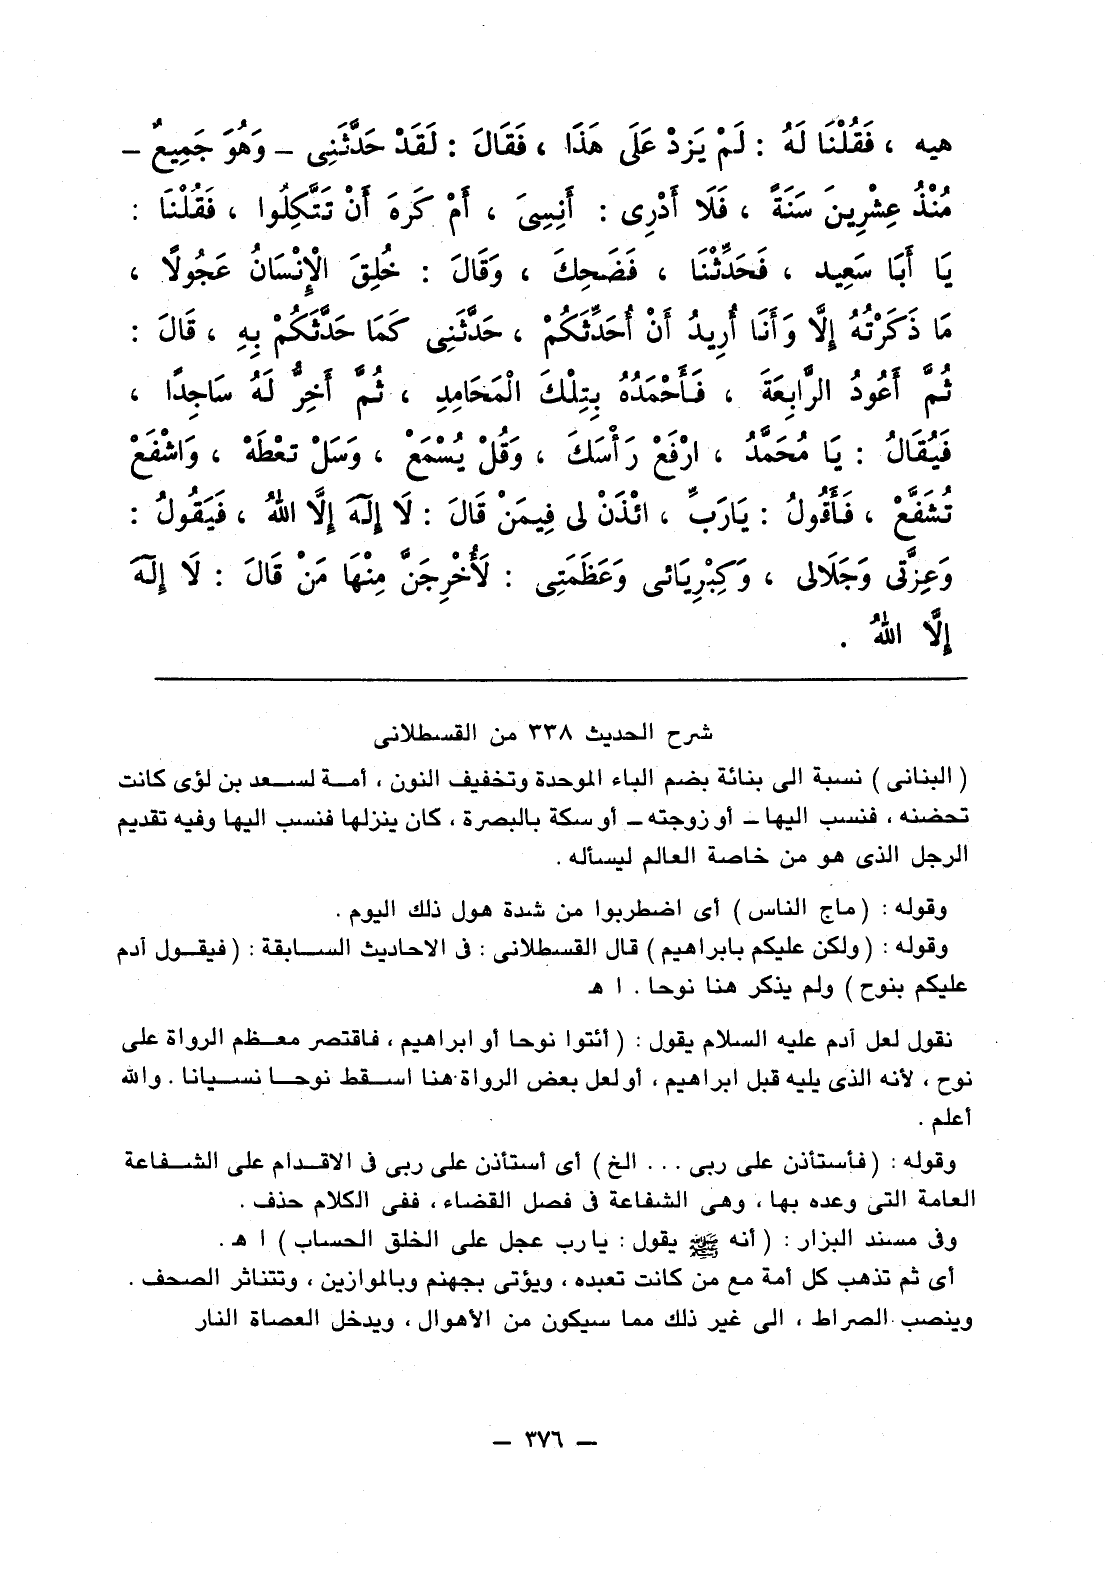 هيه ، فَقُلْنَا لَهُ : لَمْ يَزِدْ عَلَى هَذَا ، فَقَالَ : لَقَدْ حَدَّثَنِى – وَهُوَ جَمِيعٌ –
مُنْذُ عِشْرِينَ سَنَةً ، فَلَا أَدْرِى : أَنِسِىَ ، أَمْ كَرِهَ أَنْ تَتَّكِلُوا ، فَقُلْنَا :
يَا أَبَا سَعِيد ، فَحَدِّثْنَا ، فَضَحِكَ ، وَقَالَ : خُلِقَ الْإِنْسَانُ عَجُولًا ،
مَا ذَكَرْتُهُ إِلَّا وَأَنَا أُرِيدُ أَنْ أُحَدِّثَكُمْ ، حَدَّثَنِى كَمَا حَدَّثَكُمْ بِهِ ، قَالَ :
ثُمَّ أَعُودُ الرَّابِعَةَ ، فَأَحْمَدُهُ بِتِلْكَ الْمَحَامِدِ ، ثُمَّ أَخِرُّ لَهُ سَاجِدًا ،
فَيُقَالُ : يَا مُحَمَّدُ ، ارْفَعْ رَأْسَكَ ، وَقُلْ يُسْمَعْ ، وَسَلْ تعْطَهْ ، وَاشْفَعْ
تُشَفَّعْ ، فَأَقُولُ : يَارَبِّ ، ائْذَنْ لى فِيمَنْ قَالَ : لَا إِلَهَ إِلَّا اللهُ ، فَيَقُولُ :
وَعِزَّتِى وَجَلَالى ، وَكِبْرِيَائى وَعَظَمَتِى : لَأُخْرِجَنَّ مِنْهَا مَنْ قَالَ : لَا إِلَهَ
إِلَّا اللهُ .
شرح الحديث ٣٣٨ من القسطلانى
( البنانى ) نسبة الى بنانة بضم الباء الموحدة وتخفيف النون ، أمة لسعد بن لؤى كانت
تحضنه ، فنسب اليها – أو زوجته – أو سكة بالبصرة ، كان ينزلها فنسب اليها وفيه تقديم
الرجل الذى هو من خاصة العالم ليسأله .
وقوله : ( ماج الناس ) أى اضطربوا من شدة هول ذلك اليوم .
وقوله : ( ولكن عليكم بابراهيم ) قال القسطلانى : فى الاحاديث السابقة : ( فيقول آدم
عليكم بنوح ) ولم يذكر هنا نوحا . ا هـ
نقول لعل آدم عليه السلام يقول : ( أئتوا نوحا أو ابراهيم ، فاقتصر معظم الرواة على
نوح ، لأنه الذى يليه قبل ابراهيم ، أو لعل بعض الرواة هنا اسقط نوحا نسيانا . والله
أعلم .
وقوله : ( فأستأذن على ربى ... الخ ) أى أستأذن على ربى فى الاقدام على الشفاعة
العامة التى وعده بها ، وهى الشفاعة فى فصل القضاء ، ففى الكلام حذف .
وفى مسند البزار : ( أنه ﷺ يقول : يارب عجل على الخلق الحساب ) ا هـ .
أى ثم تذهب كل أمة مع من كانت تعبده ، ويؤتى بجهنم وبالموازين ، وتتناثر الصحف .
وينصب الصراط ، الى غير ذلك مما سيكون من الأهوال ، ويدخل العصاة النار
– ٣٧٦ –